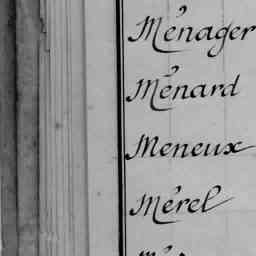 Ménager
Ménard
Meneux
Mérel